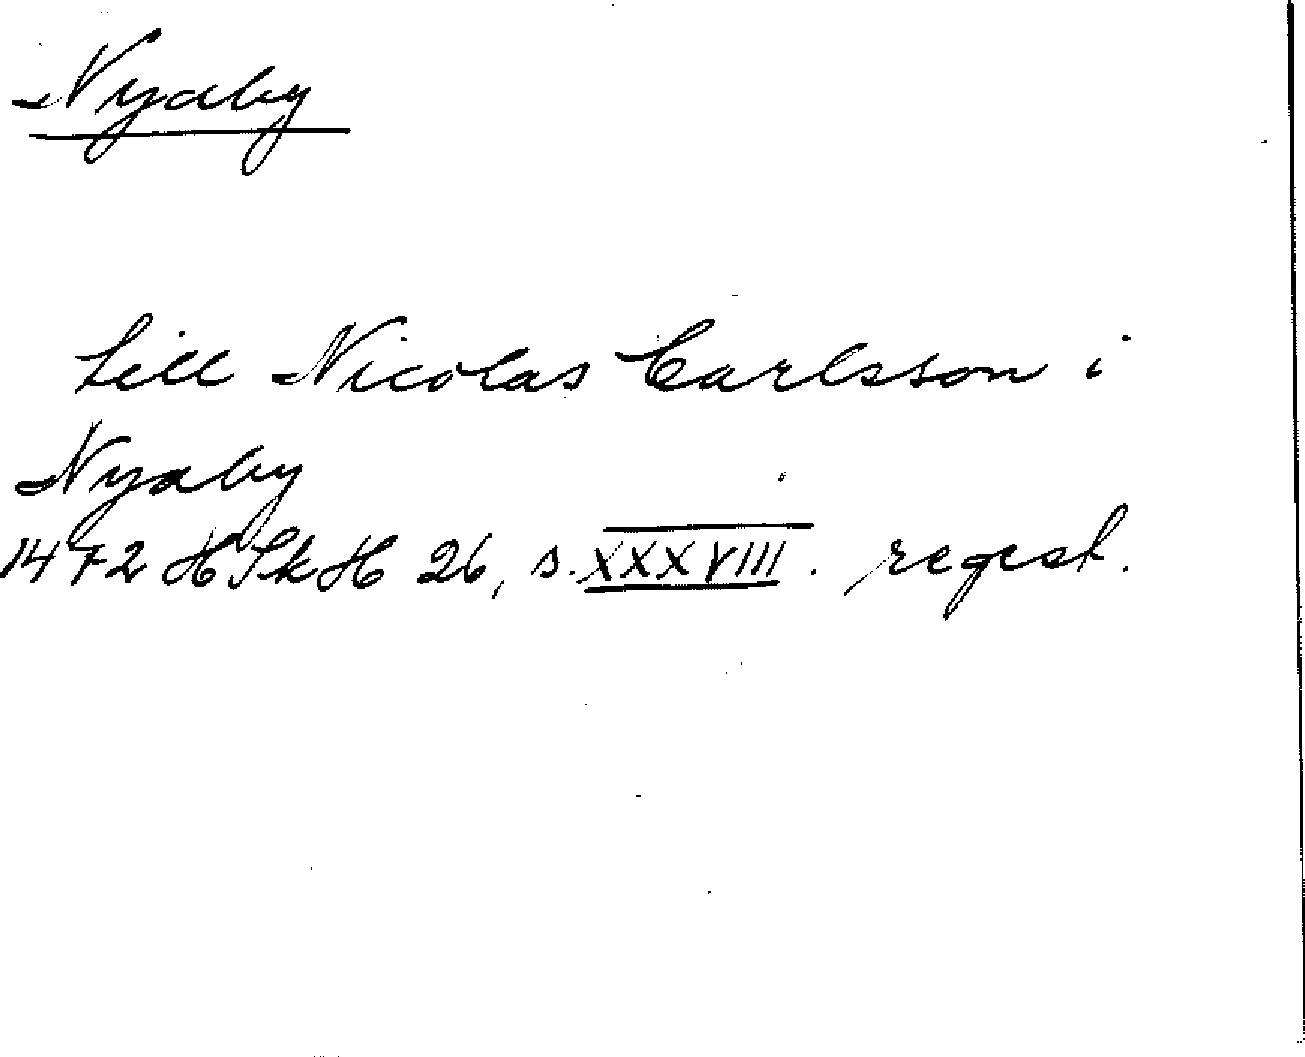 Nyaby
till Nicolas Carlsson i
Nyaby
1472 HSkH 26, s. XXXVIII. regest.